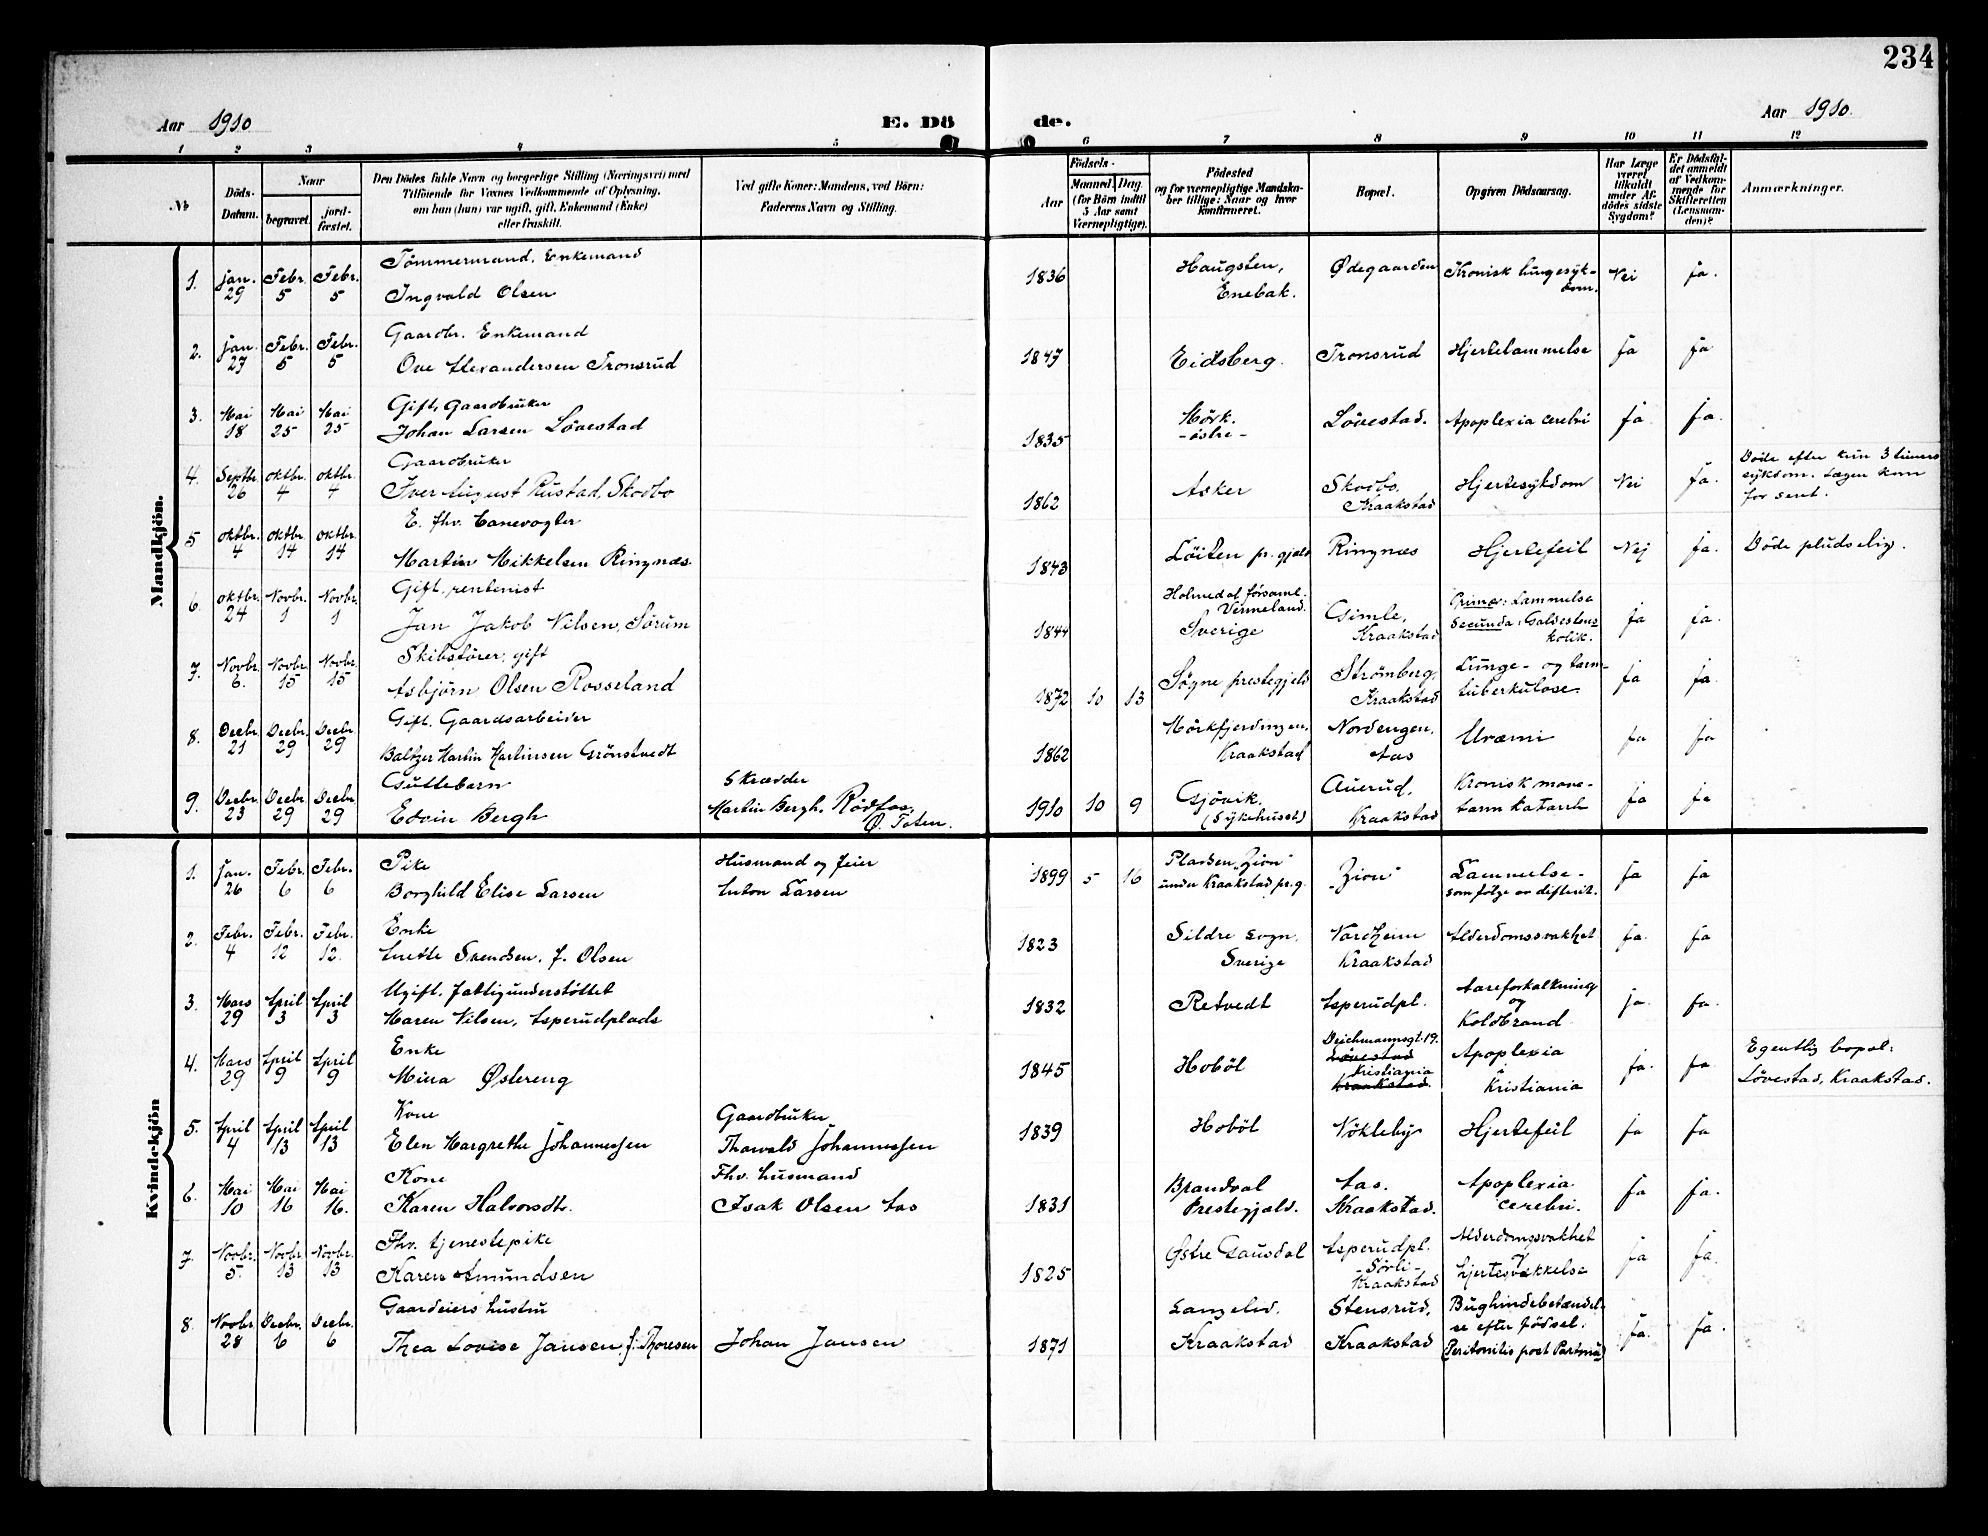 234
Aar 1910
E. Dö
de.
Aar 1910.
1 2 3 4 5 6 7 8 9 10 11 12
№
Döds-Datum.
Naar
begravet.
jord-fæstet.
Den Dödes fulde Navn og borgerlige Stilling (Næringsvei) med
Tilföiende for Voxnes Vedkommende af Oplysning,
om han (hun) var ugift, gift, Enkemand (Enke)
eller fraskilt.
Ved gifte Koner: Mandens, ved Börn:
Faderens Navn og Stilling.
Födsels-
Aar
Maaned. Dag.
(for Börn indtil
5 Aar samt
Værnepligtige).
Födested
og for værnepligtige Mandska-
ber tillige: Naar og hvor
konfirmeret.
Bopæl.
Opgiven Dödsaarsag.
Har Læge
været
tilkaldt
under Af-
dödes sidste
Sygdom?
Er Dödsfal-
det anmeldt
af Vedkom-
mende for
Skifteretten
(Lensman-
den)?
Anmærkninger.
Mandkjön.
Tömmermand, Enkemand
1. Jan. 29 Febr. 5 Febr. 5 Ingvald Olsen 1836 Haugsten, Enebak. Ødegaarden Kronisk lungesyk-dom. Nei Ja.
Gaardbr. Enkemand
2. Jan. 27 Febr. 5 Febr. 5 Ove Alexandersen Tronsrud 1847 Eidsberg. Tronsrud Hjertelammelse Ja Ja
Gift, Gaardbruker
3. Mai 18 Mai 25 Mai 25 Johan Larsen Lövestad 1835 Mörk. -östre- Lövestad. Apoplexia cerebri Ja Ja.
Gaardbruker
4. Septbr. 26 Oktbr. 4 Oktbr. 4 Iver August Rustad, Skodbo 1862 Asker Skodbo, Kraakstad Hjertesykdom Nei Ja. Döde efter kun 3 timers sykdom. Lægen kom for sent.
E. fhv. Banevogter
5 Oktbr. 4 Oktbr. 14 Oktbr. 14 Martin Mikkelsen Ringnæs 1843 Löiten pr. gjeld Ringnæs Hjertefeil Nej Ja. Döde pludselig.
Gift, rentenist
6. Oktbr. 24 Novbr. 1 Novbr. 1 Jan Jakob Nilsen, Sörum 1844 Holmedal församl. Vermeland. Sverige Gimle, Kraakstad Prima: Lammelse Secunda: Galdestens kolik. Ja Ja.
Skibsförer, gift
7. Novbr. 6. Novbr. 15 Novbr. 15 Asbjörn Olsen Rosseland 1872 10 13 Sögne prestegjeld Strömberg, Kraakstad Lunge- og tarm-tuberkulose. Ja Ja.
Gift. Gaardsarbeider
8. Decbr. 21 Decbr. 29 Decbr. 29 Baltzer Martin Martinsen Grönstvedt 1862 Mörkfjerdingen, Kraakstad Nordengen, Aas Uræmi Ja Ja
Guttebarn Skrædder
9. Decbr. 23 Decbr. 29 Decbr. 29 Edvin Bergh Martin Bergh, Rödfos, Ø. Toten. 1910 10 9 Gjövik, (Sykehuset) Auerud, Kraakstad Kronisk mave-tarm katarrh Ja Ja
Kvindekjön
Pike Husmand og feier
1. Jan. 26 Febr. 6 Febr. 6 Borghild Elise Larsen Anton Larsen 1899 5 16 Pladsen "Zion" under Kraakstad pr.g. "Zion" Lammelse- som følge av difterit. Ja Ja
Enke
2. Febr. 4 Febr. 12 Febr. 12. Anette Svendsen, f. Olsen 1823 Sildre sogn, Sverige Vardheim Kraakstad Alderdomssvakhet Ja. Ja
Ugift. Fattigunderstöttet
3. Mars 29 April 3 April 3 Maren Nilsen, Asperudplads 1832 Retvedt Asperudpl. Aareforkalkning og Koldbrand Ja. Ja.
Enke
4. Mars 29 April 9 April 9 Mina Østereng 1845 Hoböl Deichmannsgt. 19. Lövestad Kristiania Kraakstad. Apoplexia i Kristiania Ja. Ja Egentlig bopæl: Lövestad, Kraakstad.
Kone Gaardbruker
5. April 4 April 13 April 13 Elen Margrethe Johannessen Thorvald Johannessen 1839 Hoböl Nökleby Hjertefeil Ja Ja
Kone Fhv. husmand
6. Mai 10 Mai 16 Mai 16. Karen Halvorsdtr. Isak Olsen Aas 1831 Brandval Prestegjæld. Aas. Kraakstad. Apoplexia cerebri. Ja Ja.
Fhv. tjenestepike
7. Novbr. 5. Novbr. 13 Novbr. 13 Karen Amundsen 1825 Østre Gausdal Asperudpl. -Sörli- Kraakstad Alderdomssvakhet og hjertesvækkelse Ja Ja.
Gaardeiers hustru
8. Novbr. 28 Decbr. 6 Decbr. 6 Thea Lovise Jansen, f. Thoresen Johan Jansen 1871 Langelid, Kraakstad Stensrud, Kraakstad Bughindebetændel-se efter födsel. (Peritonitis post Partum) Ja. Ja.